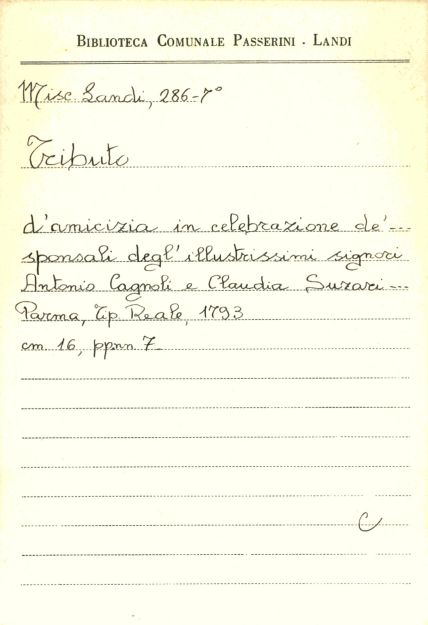 BIBLIOTECA COMUNALE PASSERINI - LANDI
Misc. Landi, 286-7°
Tributo
d'amicizia in celebrazione de' ---
sponsali degl'illustrissimi signori
Antonio Cagnoli e Claudia Suzari ---
Parma, Tip. Reale, 1793
cm. 16, ppnn 7
C